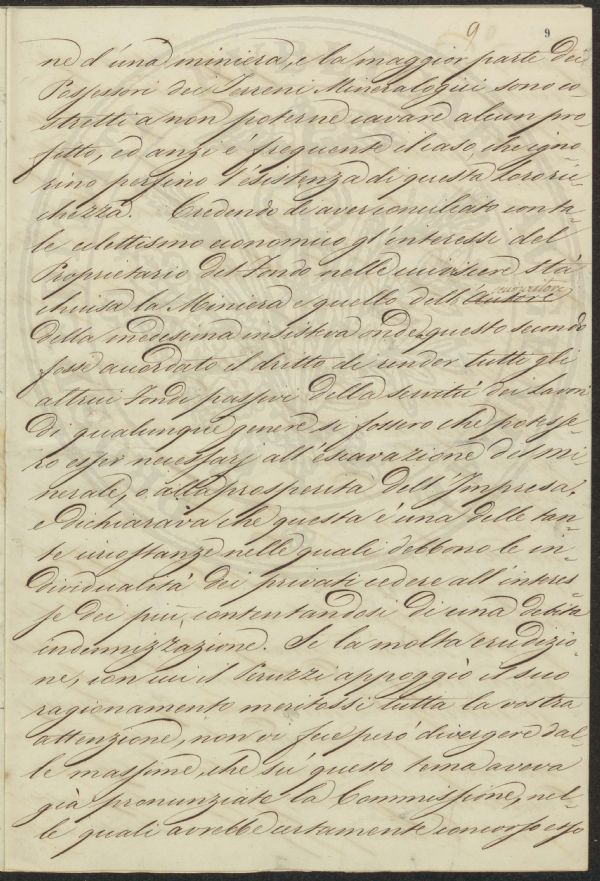 9 9
ne d'una miniera, e la maggior parte dei
Possessori dei Terreni Mineralogici sono co-
stretti a non poterne cavare alcun pro-
fitto, ed anzi é frequente il caso, che igno-
rino persino l'esistenza di questa loro ric-
chezza. Credendo di aver conciliato con ta-
le eclettismo economico gl'interessi del
Proprietario del Fondo nelle cui viscere stà
chiusa la Miniera e quello dell'Autore
della medesima insisteva onde a questo secondo
fosse accordato il dritto di render tutti gli
altrui Fondi passivi della servitù dei lavori
di qualunque genere si fossero che potesse-
ro esser necessarj all'escavazione del mi-
nerale, o alla prosperità dell'Impresa,
e dichiarava che questa é una delle tan-
te circostanze nelle quali debbono le in-
dividualità dei privati cedere all'interes-
se dei più, contentandosi di una debita
indennizzazione. Se la molta erudizio-
ne, con cui il Peruzzi appoggiò il suo
ragionamento meritossi tutta la vostra
attenzione, non vi fece peró divergere dal-
le massime, che sù questo tema aveva
già pronunziate la Commissione, nel-
le quali avrebbe certamente concorso esso